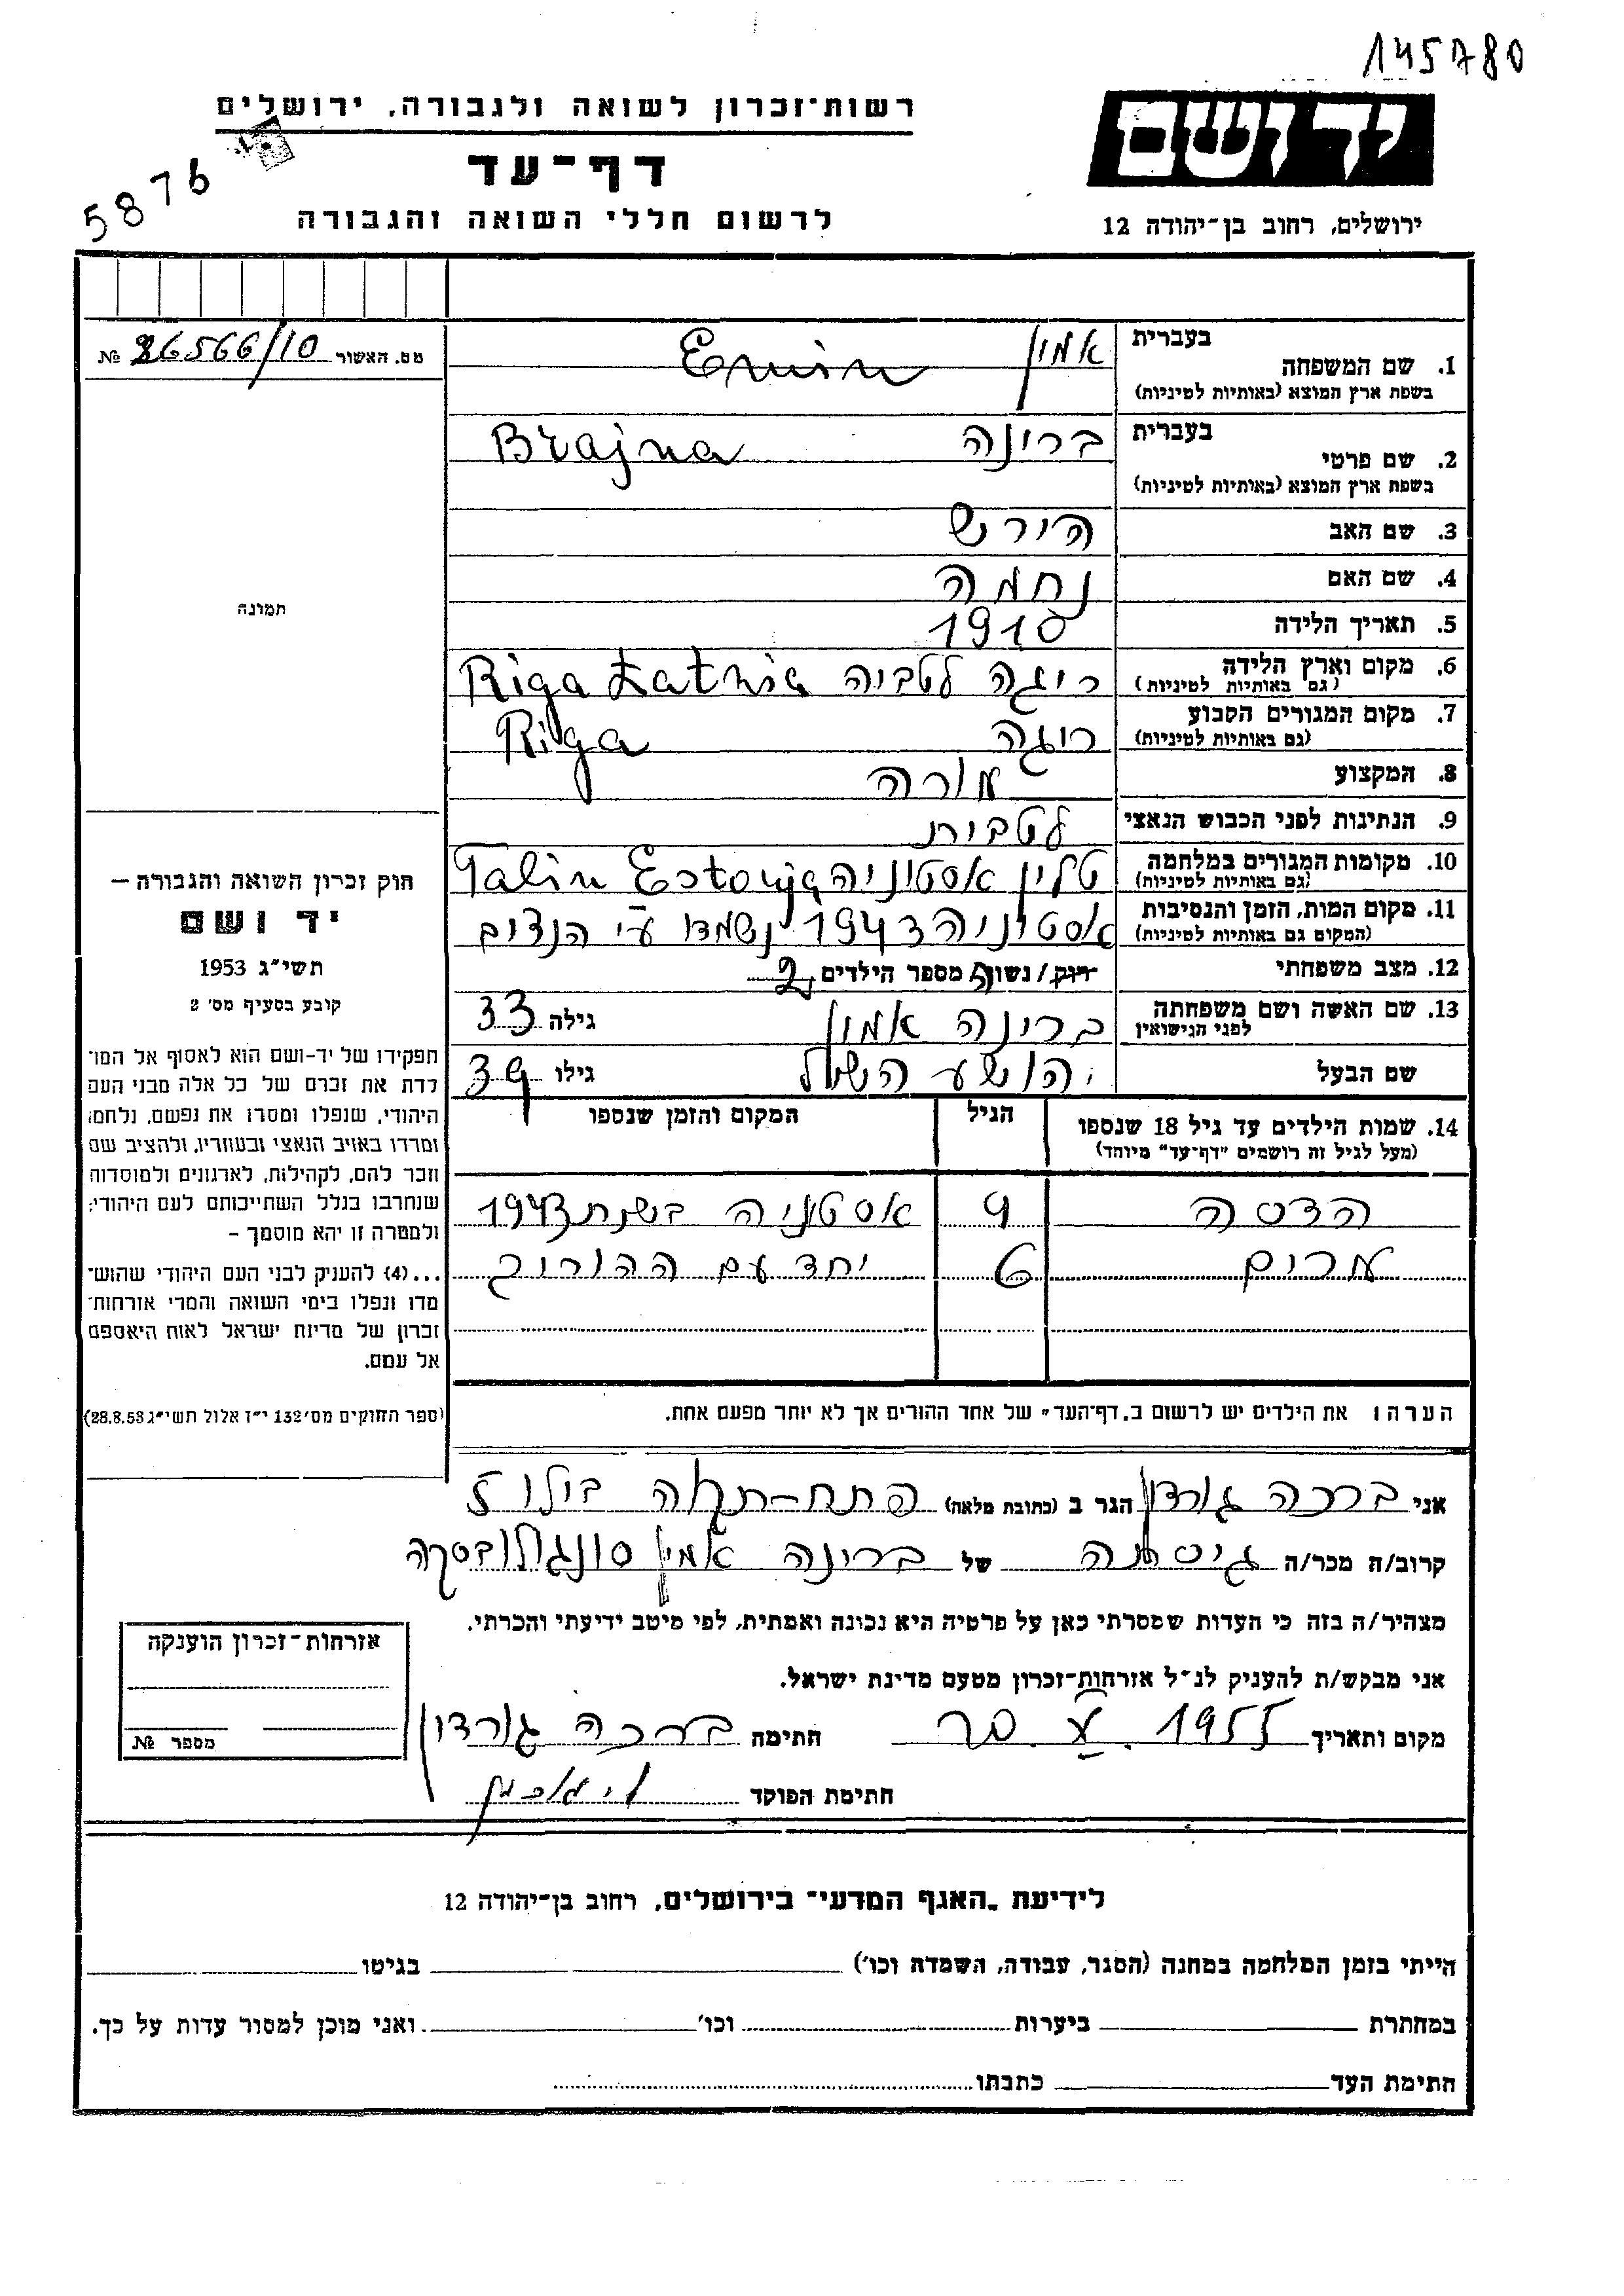 145780
רשות־זכרון לשואה ולגבורה, ירושלים
יד ושם
דף־עד
5876
לרשום חללי השואה והגבורה
ירושלים, רחוב בן־יהודה 12
מס. האשור 26566/10 №
1. שם המשפחה
בעברית אמין
בשפת ארץ המוצא (באותיות לטיניות) Emin
2. שם פרטי
בעברית ברינה
בשפת ארץ המוצא (באותיות לטיניות) Brajna
3. שם האב הירש
4. שם האם נחמה
5. תאריך הלידה 1910
6. מקום וארץ הלידה ריגה לטביה Riga Latvia
(גם באותיות לטיניות)
7. מקום המגורים הקבוע ריגה Riga
(גם באותיות לטיניות)
8. המקצוע מורה
9. הנתינות לפני הכבוש הנאצי לטבית
10. מקומות המגורים במלחמה טלין אסטוניה Talin Estonja
(גם באותיות לטיניות)
11. מקום המות, הזמן והנסיבות אסטוניה 1943 נשמדו ע"י הנצים
(המקום גם באותיות לטיניות)
12. מצב משפחתי רוק/נשוי מספר הילדים 2
13. שם האשה ושם משפחתה ברינה אמין גילה 33
לפני הנישואין
שם הבעל יהושע גילו 39
תמונה
חוק זכרון השואה והגבורה —
יד ושם
תשי"ג 1953
קובע בסעיף מס' 2
תפקידו של יד-ושם הוא לאסוף אל המו־
לדת את זכרם של כל אלה מבני העם
היהודי, שנפלו ומסרו את נפשם, נלחמו
ומרדו באויב הנאצי ובעוזריו, ולהציב שם
וזכר להם, לקהילות, לארגונים ולמוסדות
שנחרבו בגלל השתייכותם לעם היהודי;
ולמטרה זו יהא מוסמך –
...(4) להעניק לבני העם היהודי שהוש־
מדו ונפלו בימי השואה והמרי אזרחות־
זכרון של מדינת ישראל לאות היאספם
אל עמם.
(ספר החוקים מס' 132 י"ז אלול תשי"ג 28.8.53)
14. שמות הילדים עד גיל 18 שנספו הגיל המקום והזמן שנספו
(מעל לגיל זה רושמים "דף־עד" מיוחד)
הדסה 9 אסטניה בשנת 1943
מרים 6 יחד עם ההורים
הערה: את הילדים יש לרשום ב„דף־העד" של אחד ההורים אך לא יותר מפעם אחת.
אני ברכה גורדון הגר ב (כתובת מלאה) פתח-תקוה בילו 5
קרוב/ה מכר/ה גיסתה של ברינה אמין
מצהיר/ה בזה כי העדות שמסרתי כאן על פרטיה היא נכונה ואמתית, לפי מיטב ידיעתי והכרתי.
אני מבקש/ת להעניק לנ"ל אזרחות־זכרון מטעם מדינת ישראל.
מקום ותאריך 1955 חתימה ברכה גורדון
חתימת הפוקד
אזרחות־זכרון הוענקה
מספר №
לידיעת „האגף המדעי" בירושלים, רחוב בן־יהודה 12
הייתי בזמן המלחמה במחנה (הסגר, עבודה, השמדה וכו') בגיטו
במחתרת ביערות וכו' ואני מוכן למסור עדות על כך.
חתימת העד כתבתו